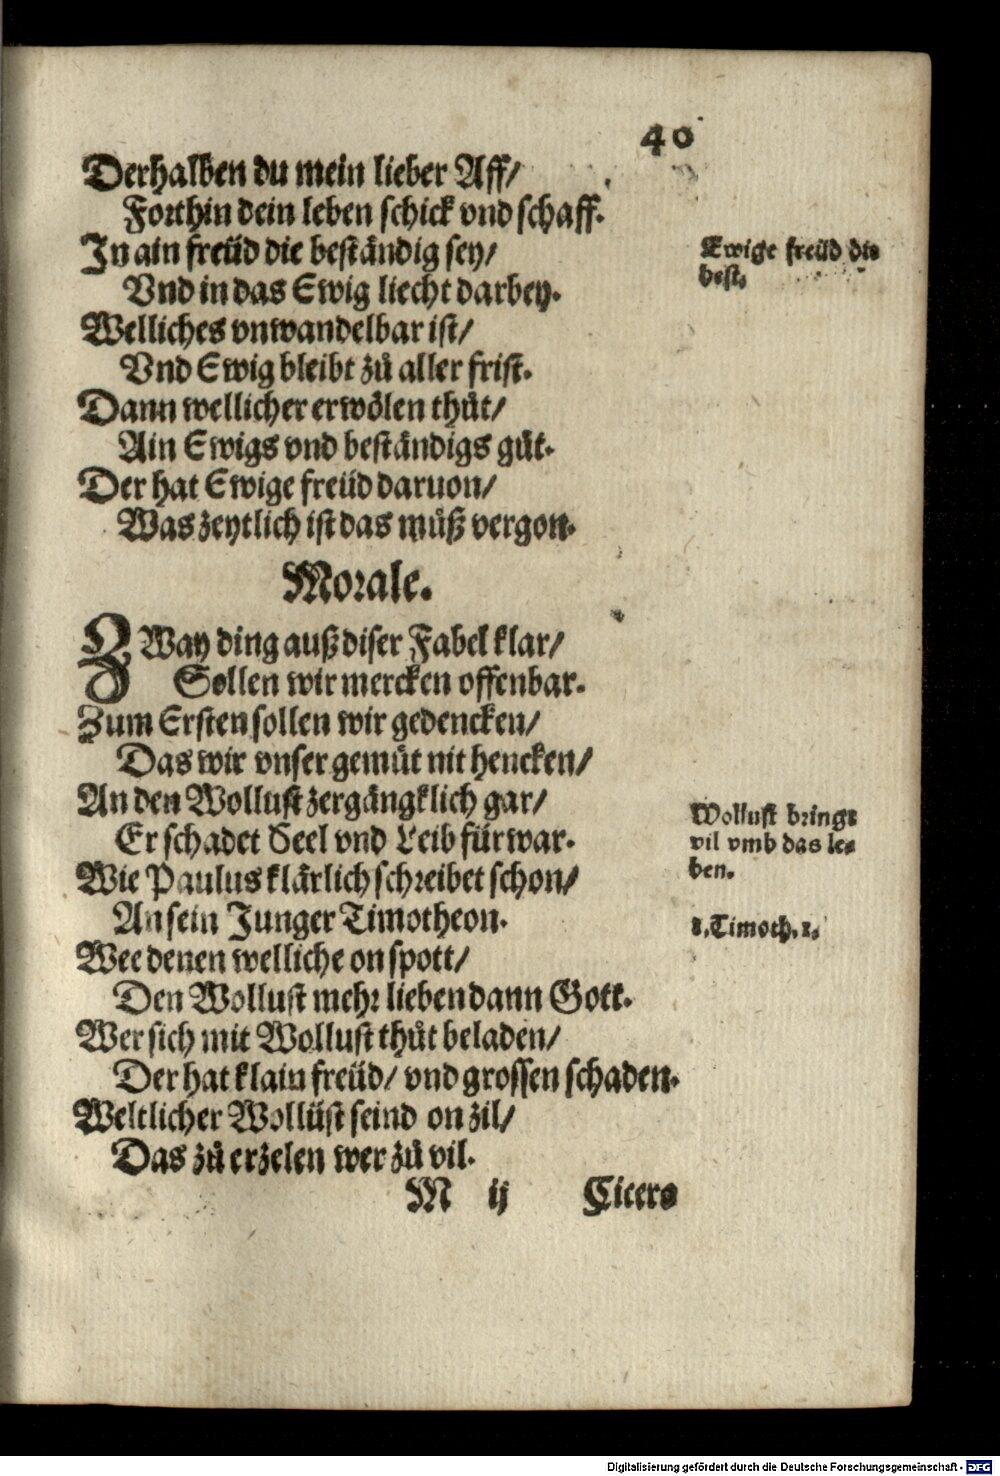 40
Derhalben du mein lieber Aff/
Forthin dein leben schick vnd schaff.
In ain freüd die beständig sey/
Ewige freüd die
best.
Vnd in das Ewig liecht darbey.
Welliches vnwandelbar ist/
Vnd Ewig bleibt zů aller frist.
Dann wellicher erwölen thůt/
Ain Ewigs vnd beständigs gůt.
Der hat Ewige freüd daruon/
Was zeytlich ist das můß vergon.
Morale.
ZWay ding auß diser Fabel klar/
Sollen wir mercken offenbar.
Zum Ersten sollen wir gedencken/
Das wir vnser gemüt nit hencken/
An den Wollust zergängklich gar/
Wollust bringt
vil vmb das le-
ben.
Er schadet Seel vnd Leib fürwar.
Wie Paulus klärlich schreibet schon/
An sein Junger Timotheon.
1.Timoth.1.
Wee denen welliche on spott/
Den Wollust mehr lieben dann Gott.
Wer sich mit Wollust thůt beladen/
Der hat klain freüd/ vnd grossen schaden.
Weltlicher Wollüst seind on zil/
Das zů erzelen wer zů vil.
M ij Cicero
Digitalisierung gefördert durch die Deutsche Forschungsgemeinschaft - DFG